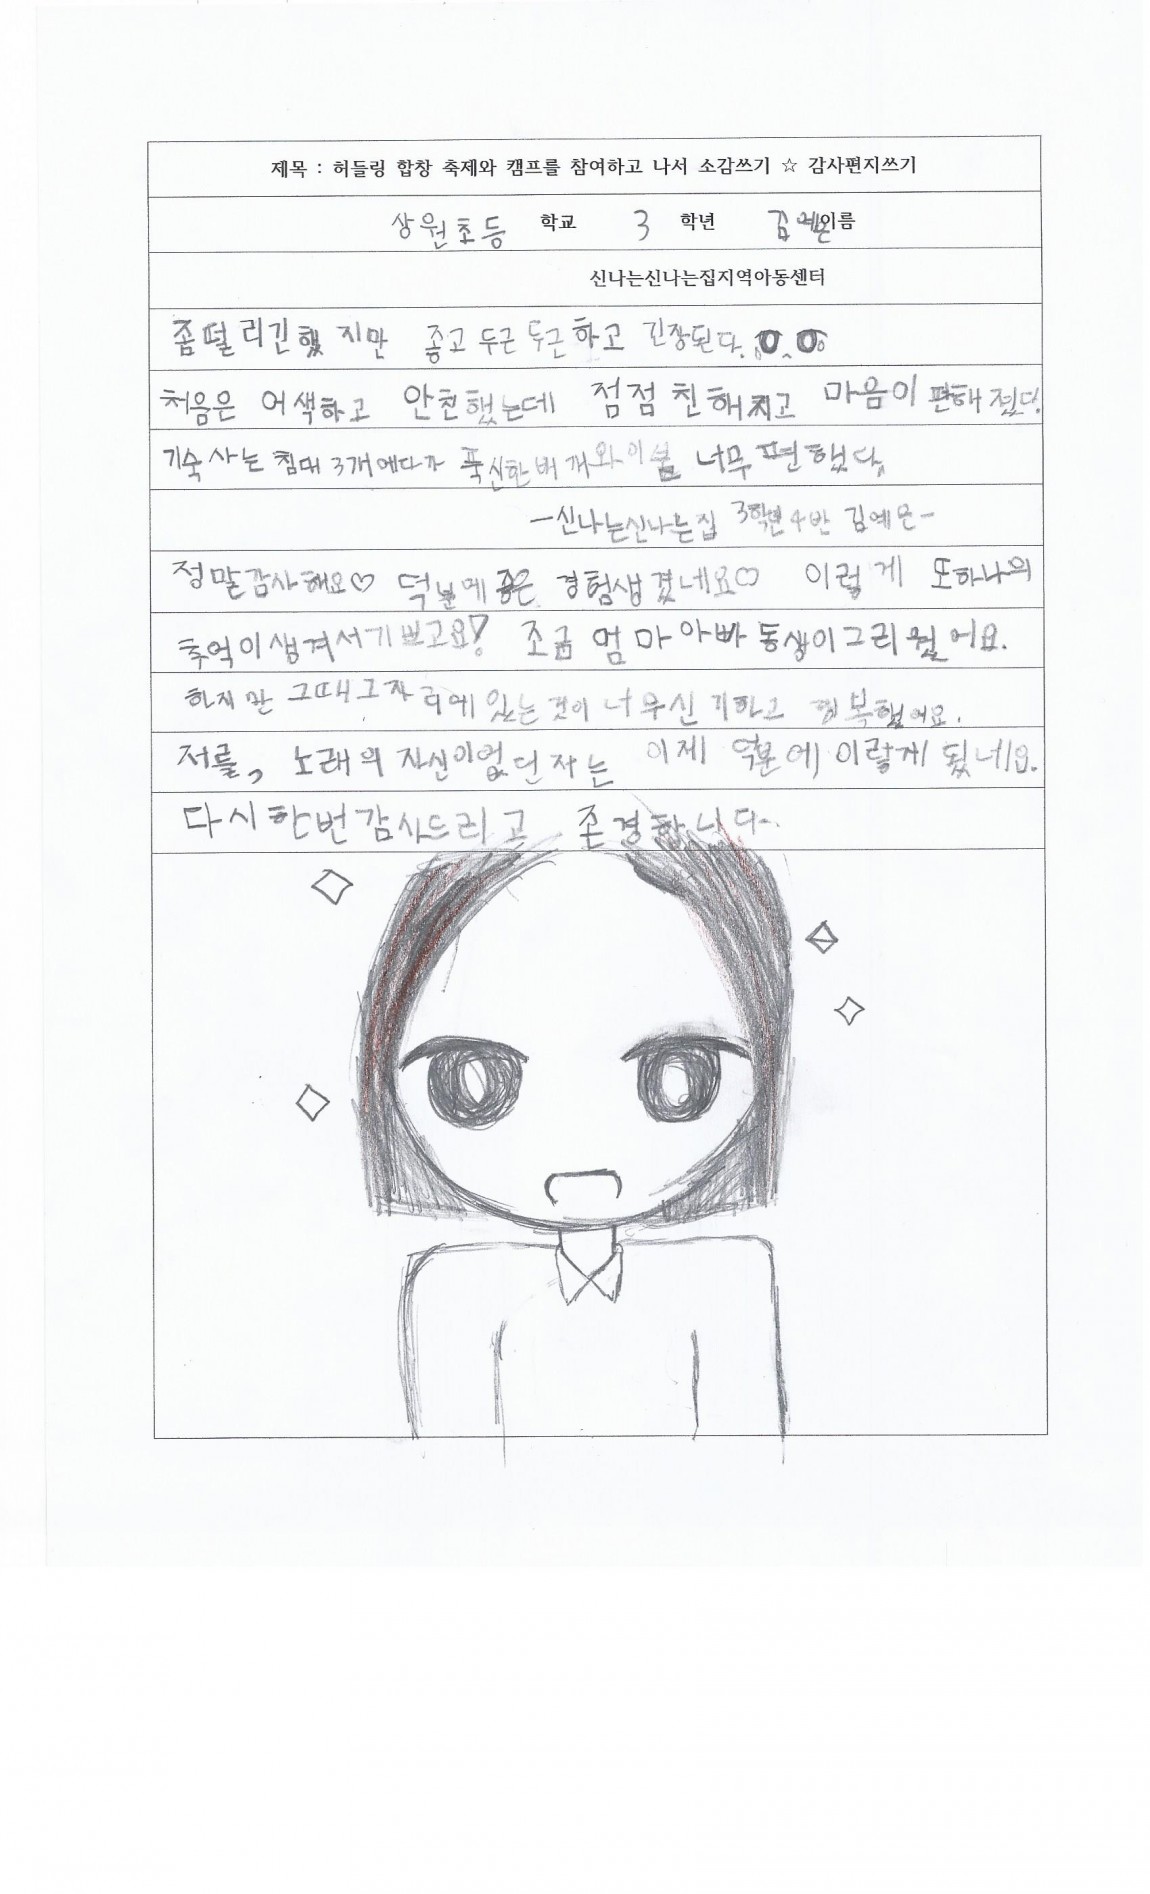 제목 : 허들링 합창 축제와 캠프를 참여하고 나서 소감쓰기 ☆ 감사편지쓰기
상원초등 학교 3 학년 김예은이름
신나는신나는집지역아동센터
좀떨리긴했지만 좋고 두근두근하고 긴장된다.
처음은 어색하고 안친했는데 점점 친해지고 마음이 편해졌다.
기숙사는 침대 3개에다가 푹신한베개와이불 너무 편했다.
-신나는신나는집 3학년 4반 김예은-
정말감사해요♡ 덕분에 좋은 경험생겼네요♡ 이렇게 또하나의
추억이생겨서기쁘고요! 조금 엄마아빠동생이그리웠어요.
하지만 그때그자리에 있는것이 너무신기하고 행복했어요.
저를, 노래의 자신이없던저는 이제 덕분에이렇게 됐네요.
다시한번감사드리고 존경합니다.